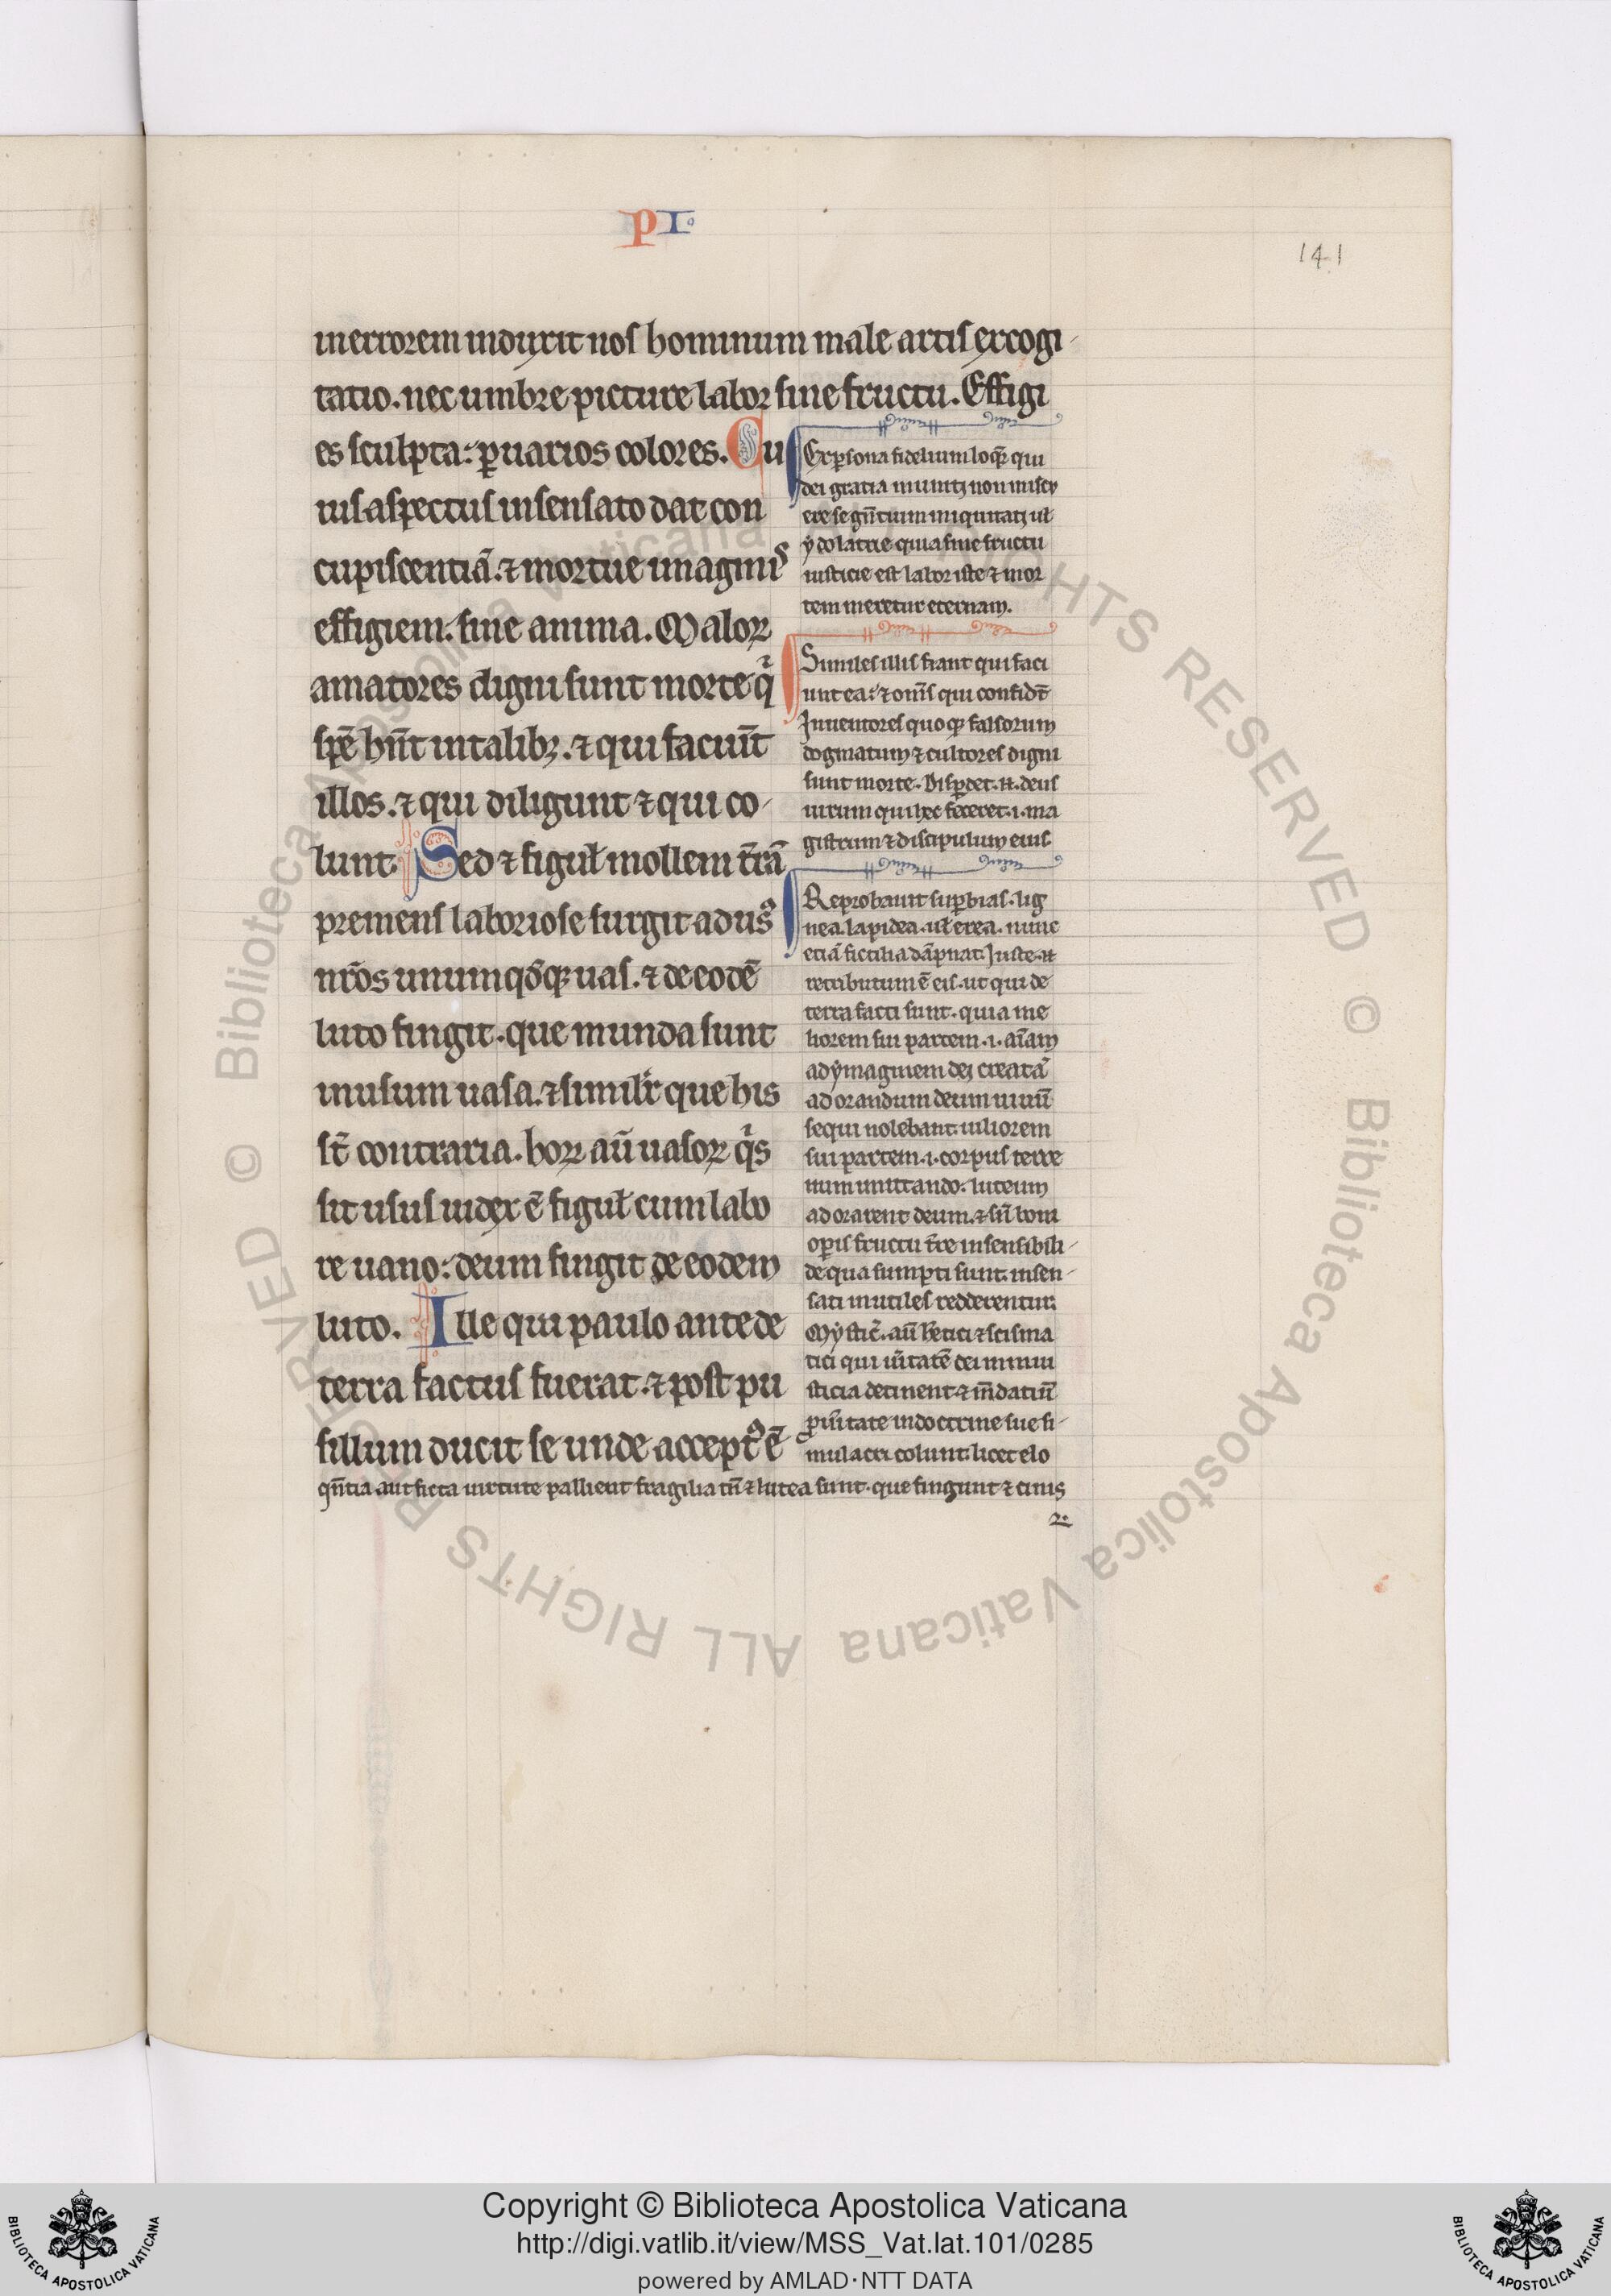 PI.
141
in errorem induxit nos hominum male artis excogi-
tatio. nec umbre picture labor sine fructu. Effigi
es sculpta: ꝑ uarios colores. Cu
ius aspectus insensato dat con
cupiscentiā. ⁊ mortue imaginis
effigiem. sine anima. Maloꝝ
amatores digni sunt morte qͥ
spē hn̄t in talibꝫ. ⁊ qui faciūt
illos. ⁊ qui diligunt ⁊ qui co-
lunt. Sed ⁊ figul̄ mollem t̄rā
premens laboriose fingit ad usꝰ
nr̄os unumqᵒꝙ uas. ⁊ de eodē
luto fingit. que munda sunt
in usum uasa. ⁊ similr̄ que his
st̄ contraria. hoꝝ aū uasoꝝ qͥs
sit usus iudex ē figul̄ cum labo
re uano: deum fingit de eodem
luto. Ille qui paulo ante de
terra factus fuerat. ⁊ post pu
sillum ducit se unde acceptꝰ ē
Ex ꝑsona fidelium loqͥꝛ qui
dei gratia munitꝫ non miscu
ere se gn̄tium iniquitatꝫ ul̄
ydolatrie quia sine fructu
iusticie est labor iste ⁊ mor
tem meretur eternam.
Similes illis fiant qui faci
unt ea: ⁊ om̄s qui confidt̄
Inuentores quoꝙ falsorum
dogmatum ⁊ cultores digni
sunt morte. Disꝑdet. n̄. deus
uirum qui hec fecerit. i. ma
gistrum ⁊ discipulum eius
Reprobauit suꝑbias. lig
nea. lapidea. ul̄ erea. nunc
etiā fictilia dāpnat. Iuste. n̄
retributum ē eis. ut qui de
terra facti sunt. quia me
liorem sui partem. i. aīam
ad ymaginem dei creatā
ad orandum deum uiuū
sequi nolebant uiliorem
sui partem. i. corpus terre
num imitando. luteum
adorarent deum. ⁊ sn̄ boni
oꝑis fructu t̄re insensibili-
de qua sumpti sunt. insen-
sati inutiles redderentur.
Mystic̄. aū h̄etici ⁊ scisma
tici qui u̅itatē dei in iniu
sticia detinent ⁊ m̄datiū
ꝓ u̅itate in doctrine sue si-
mulacri colunt. licet elo
qn̄tia aut ficta uirtute pallient fragilia tn̄ ⁊ lutea sunt. que fingunt ⁊ cinis
Copyright © Biblioteca Apostolica Vaticana
http://digi.vatlib.it/view/MSS_Vat.lat.101/0285
powered by AMLAD·NTT DATA
BIBLIOTECA APOSTOLICA VATICANA
BIBLIOTECA APOSTOLICA VATICANA
© Biblioteca Apostolica Vaticana ALL RIGHTS RESERVED
© Biblioteca Apostolica Vaticana ALL RIGHTS RESERVED